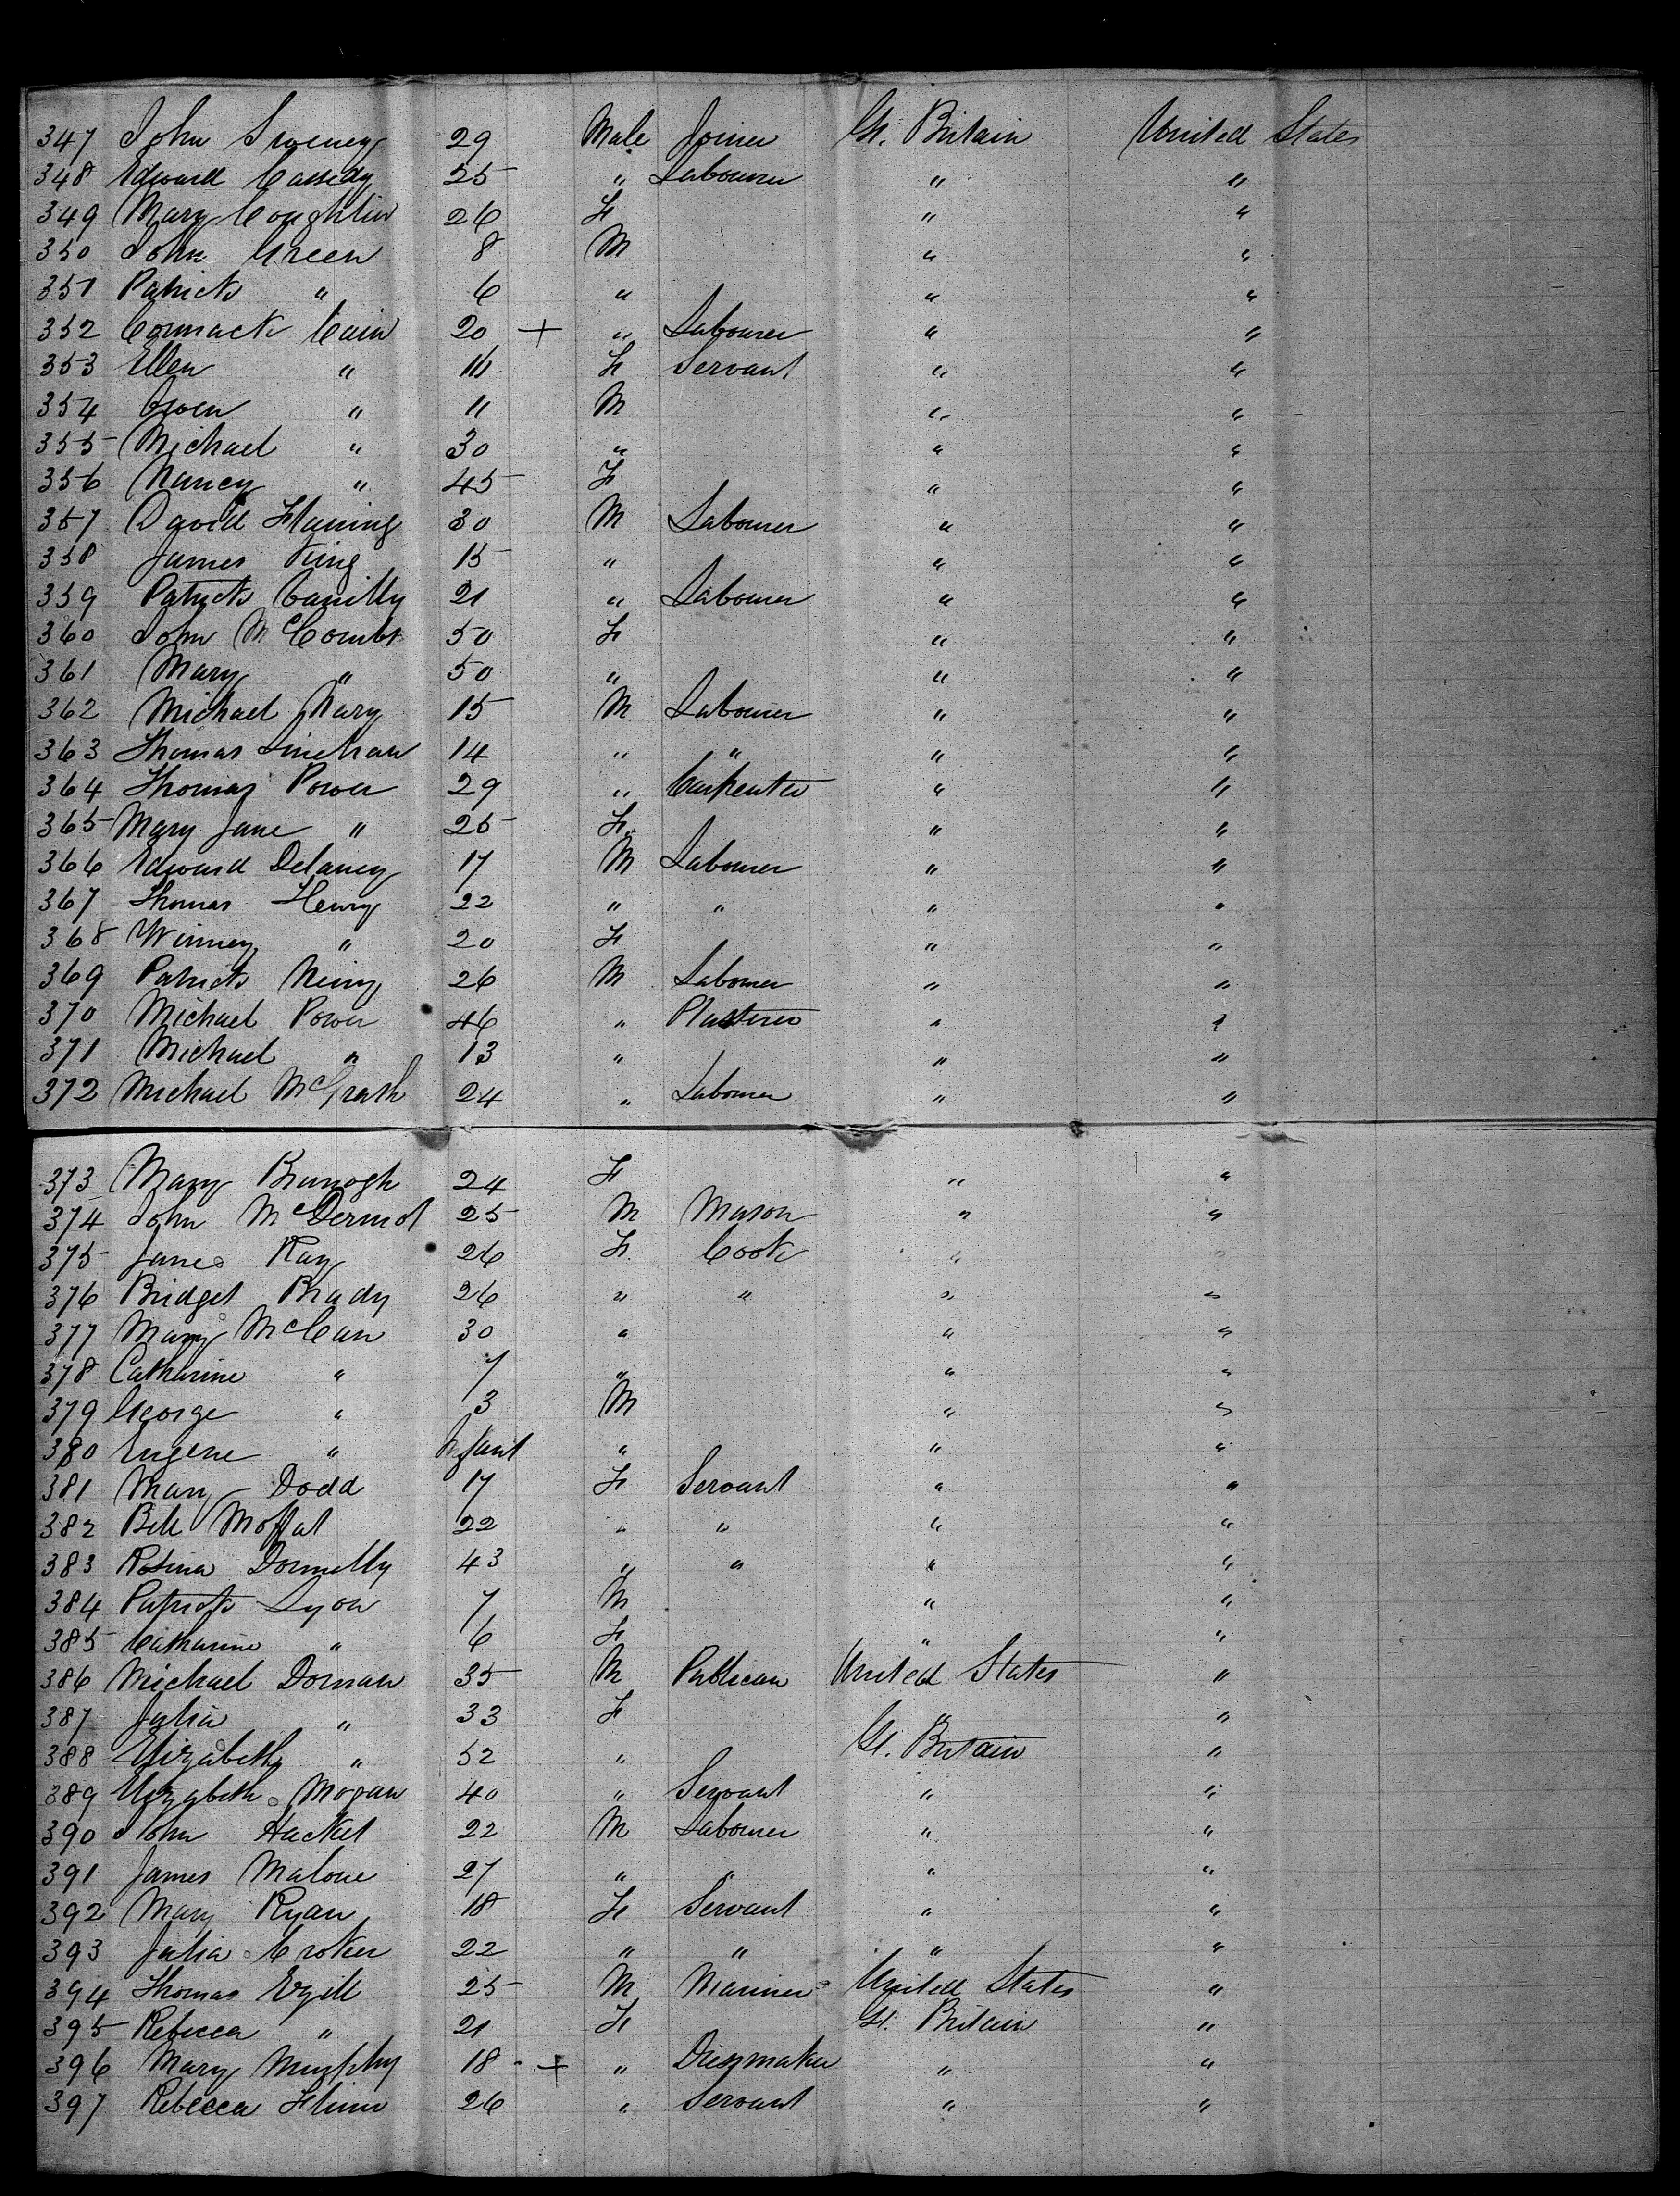 347 John Sweeney 29 Male Joiner Gt. Britain United States
348 Edward Cassedy 25 " Labourer " "
349 Mary Coughlin 26 F " "
350 John Green 8 M " "
351 Patrick " 6 " " "
352 Cormack Cain 20 + " Labourer " "
353 Ellen " 16 F Servant " "
354 Owen " 11 M " "
355 Michael " 30 " " "
356 Nancy " 45 F " "
357 David Flaming 30 M Labourer " "
358 James King 15 " " "
359 Patrick 21 " Labourer " "
360 John McCombs 50 F " "
361 Mary " 50 " " "
362 Michael Nary 15 M Labourer " "
363 Thomas Linehan 14 " " " "
364 Thomas Power 29 " Carpenter " "
365 Mary Jane " 25 F. " "
366 Edward Delaney 17 M Labourer " "
367 Thomas Henry 22 " " " "
368 Winney " 20 F " "
369 Patrick 26 M Labourer " "
370 Michael Power 46 " Plasterer " "
371 Michael " 13 " " "
372 Michael McGrath 24 " Labourer " "
373 Mary 24 F " "
374 John McDermot 25 M Mason " "
375 Jane Ray 26 F. Cook " "
376 Bridget Brady 26 " " " "
377 Mary McCan 30 " " "
378 Catharine " 7 " " "
379 George " 3 M " "
380 Eugene " Infant " " "
381 Mary Dodd 17 F Servant " "
382 Bell Moffat 22 " " " "
383 Rosina Donnelly 43 " " " "
384 Patrick Lyon 7 M " "
385 Catharine " 6 F " "
386 Michael Dornan 35 M Publican United States "
387 Julia " 33 F " "
388 Elizabeth " 52 " Gt. Britain "
389 Elizabeth Mogan 40 " Servant " "
390 John Hacket 22 M Labourer " "
391 James Malone 27 " " " "
392 Mary Ryan 18 F Servant " "
393 Julia Croker 22 " " " "
394 Thomas 25 M Mariner United States "
395 Rebecca " 21 F Gt. Britain "
396 Mary Murphy 18 + " Dressmaker " "
397 Rebecca Flinn 26 " Servant " "